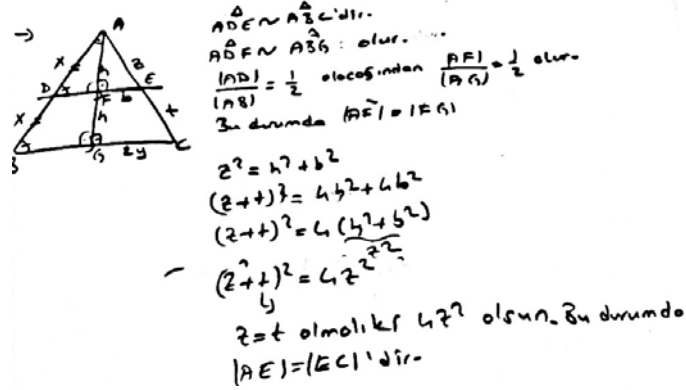 A
x z
h
D E
F b
x h t
B G 2y C
ADE ~ ABC'dir.
ADF ~ ABG : olur.
|AD| / |AB| = 1/2 olacağından |AF| / |AG| = 1/2 olur.
Bu durumda |AF| = |FG|
z² = h² + b²
(z+t)² = 4h² + 4b²
(z+t)² = 4(h² + b²)
z²
(z+t)² = 4z²
z = t olmalıki 4z² olsun. Bu durumda
|AE| = |EC|'dir.